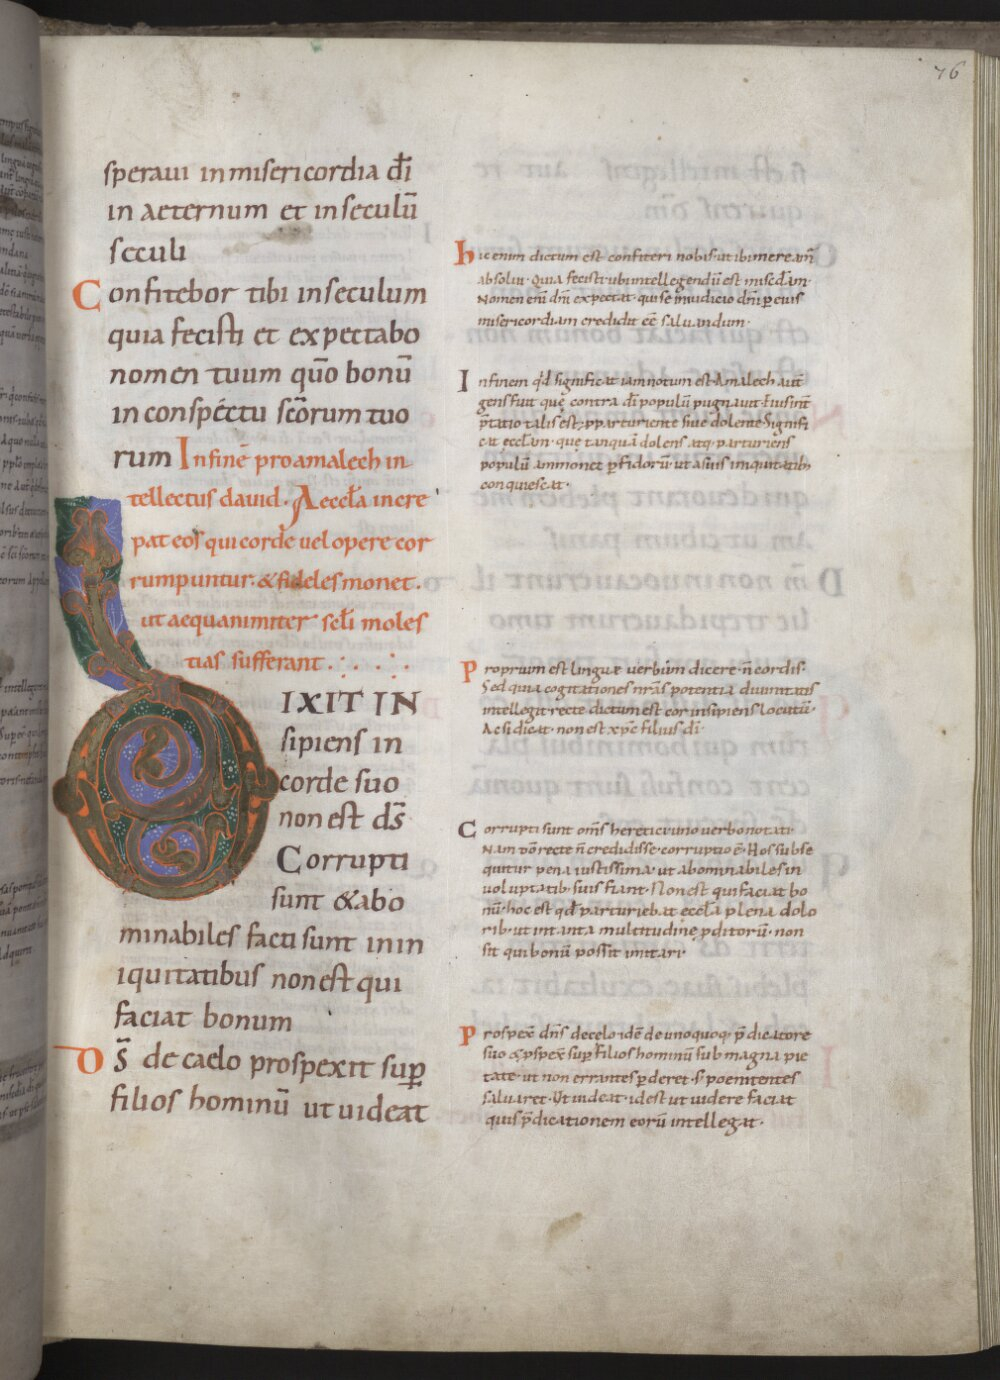 76
speraui in misericordia dī
in aeternum et in seculū
seculi
Confitebor tibi in seculum
quia fecisti et expectabo
nomen tuum quō bonū
in conspectu scōrum tuo
rum Infinē pro amalech in
tellectus dauid. Aeccła incre
pat eos qui corde uel opere cor
rumpuntur. & fideles monet.
ut aequanimiter secłi moles
tias sufferant.
DIXIT IN
sipiens in
corde suo
non est dS̄
Corrupti
sunt & abo
minabiles facti sunt in in
iquitatibus non est qui
faciat bonum
DS̄ de caelo prospexit suꝑ
filios hominū ut uideat
hic enim dictum est confiteri nobis ut ibi mereamī
absolui. Quia fecisti ubi intellegendū est misc̄dam
Nomen enī dnī expectat. qui se in iudicio dnī ꝑ eius
misericordiam credidit eē saluandum.
Infinem qd̄ significat iam notum est. Amalech aut̄
gens fuit quę contra dī populū pugnauit.
p̄tatio talis est. parturiens siue dolens. Signifi
cat eccłam. quę tanquā dolens atq; parturiens
populū ammonet ꝑfidorū ut a suis iniquitatib;
conquiescat.
Proprium est linguę uerbum dicere. n̄ cordis.
Sed quia cogitationes nr̄as potentia diuinitatis
intellegit recte dictum est cor insipiens locutū.
Ac si dicat. non est xp̄c filius dī.
Corrupti sunt oms̄ heretici uno uerbo notati
Nam dō recte n̄ credidisse. corruptio ē. Hos subse
quitur pena iustissima. ut abominabiles in
uoluptatib; suis fiant. Non est qui faciat bo
nū. hoc est qd̄ parturiebat eccła plena dolo
rib; ut in tanta multitudine ꝑditorū. non
sit qui bonū possit imitari.
Prospex̄ dns̄ de celo idē de unoquoq; p̄dicatore
suo & ꝓspex̄ suꝑ filios hominū sub magna pie
tate. ut non errantes ꝑderet. s; poenitentes
saluaret. Ut uideat. id est ut uidere faciat
quis p̄dicationem eorū intellegat.